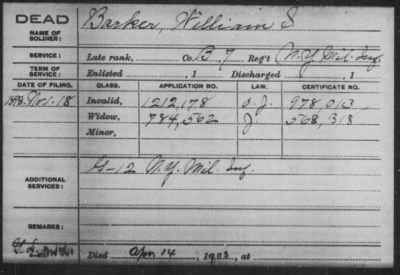 DEAD
NAME OF SOLDIER: Barker, William S.
SERVICE: Late rank, Co. B 7 Reg't N.Y. Mil. Inf.
TERM OF SERVICE: Enlisted , 1 Discharged , 1
DATE OF FILING. CLASS. APPLICATION NO. LAW. CERTIFICATE NO.
Nov. 18 Invalid, 1212,178 978,013
Widow, 784,562 568,318
Minor,
ADDITIONAL SERVICES: G-12 N.Y. Mil. Inf.
REMARKS:
Died Apr. 14, 190 , at